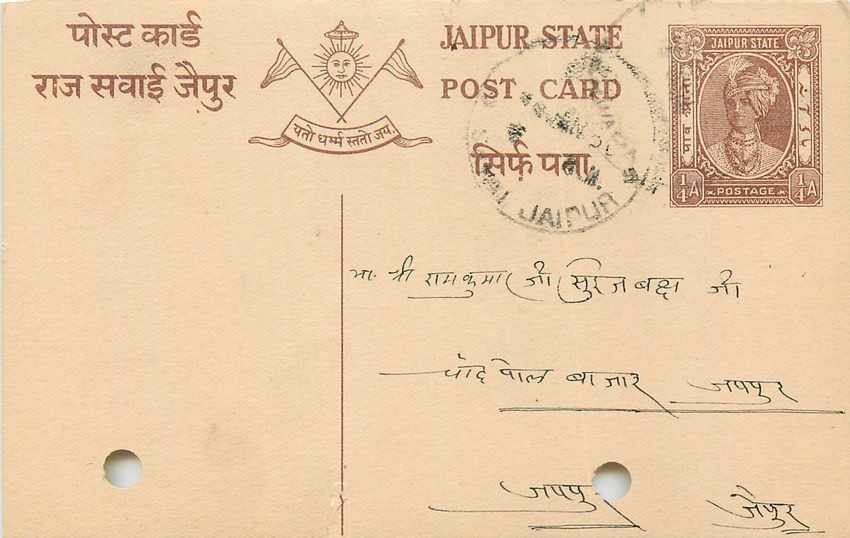 पोस्ट कार्ड
राज सवाई जैपुर
यतो धर्म्म स्ततो जय.
JAIPUR STATE
POST CARD
सिर्फ़ पता
JAIPUR STATE
पाव आना
1/4 A POSTAGE 1/4 A
JAIPUR
भा. श्री रामकुमार जी सुरजबक्ष जी
चांदपोल बाजार जयपुर
जयपु
जैपुर